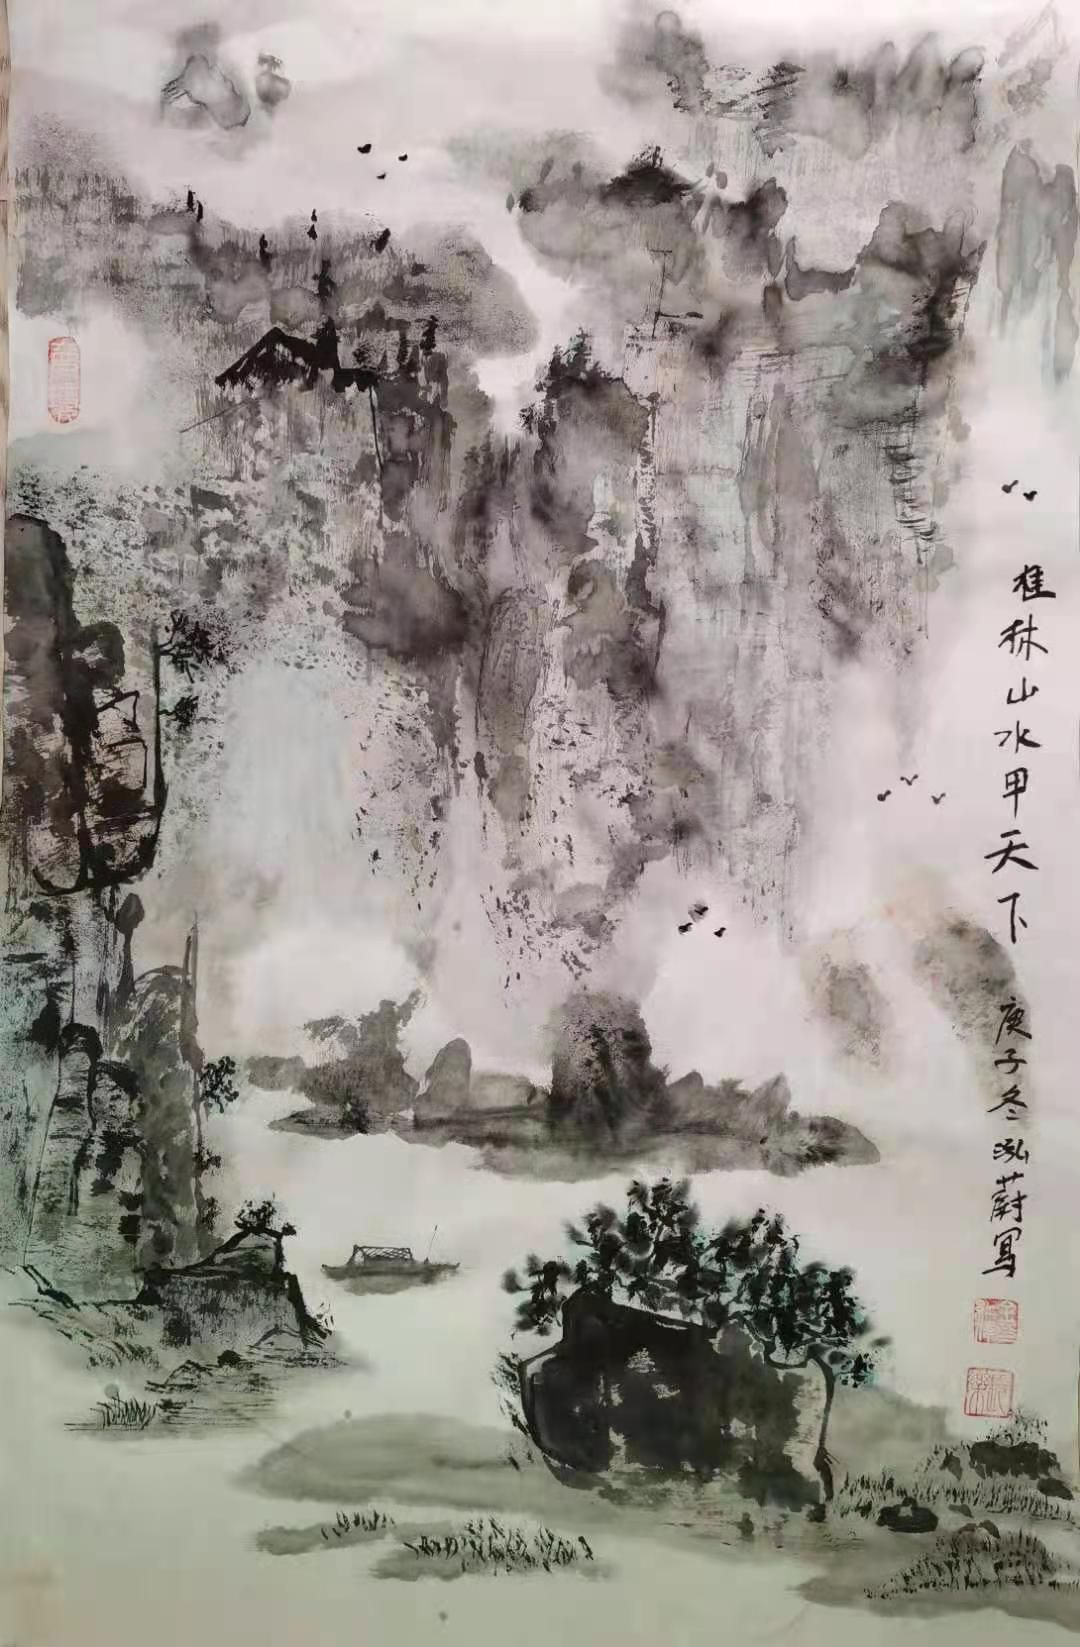 桂林山水甲天下
庚子冬泓蔚写